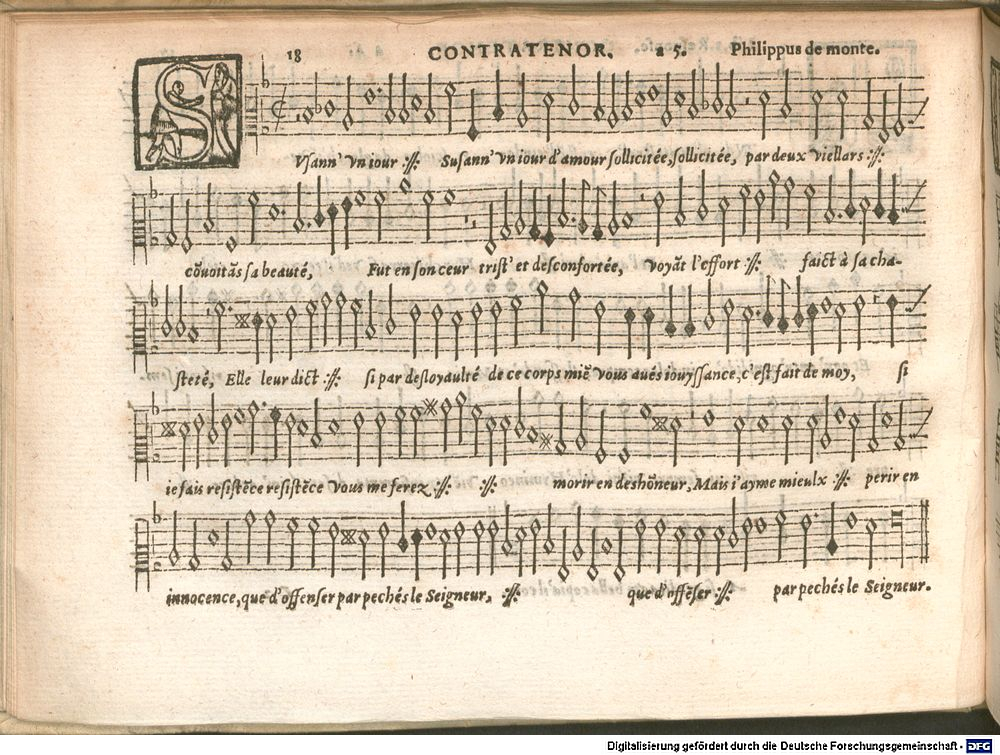 18 CONTRATENOR. a 5. Philippus de monte.
SVsann' vn iour ://: Susann' vn iour d'amour sollicitée, sollicitée, par deux viellars ://:
cõuoitãs sa beauté, Fut en son ceur trist' et desconfortée, voyãt l'effort ://: faict à sa cha-
steté, Elle leur dict ://: si par desloyaulté de ce corps miẽ vous aués iouyssance, c'est fait de moy, si
ie fais resistẽce resistẽce vous me ferez ://: ://: morir en deshõneur, Mais i'ayme mieulx ://: perir en
innocence, que d'offenser par pechés le Seigneur, ://: que d'offẽser ://: par pechés le Seigneur.
Digitalisierung gefördert durch die Deutsche Forschungsgemeinschaft - DFG